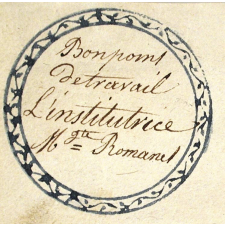 Bonpoint
de travail
L'institutrice
M^gte Romanet